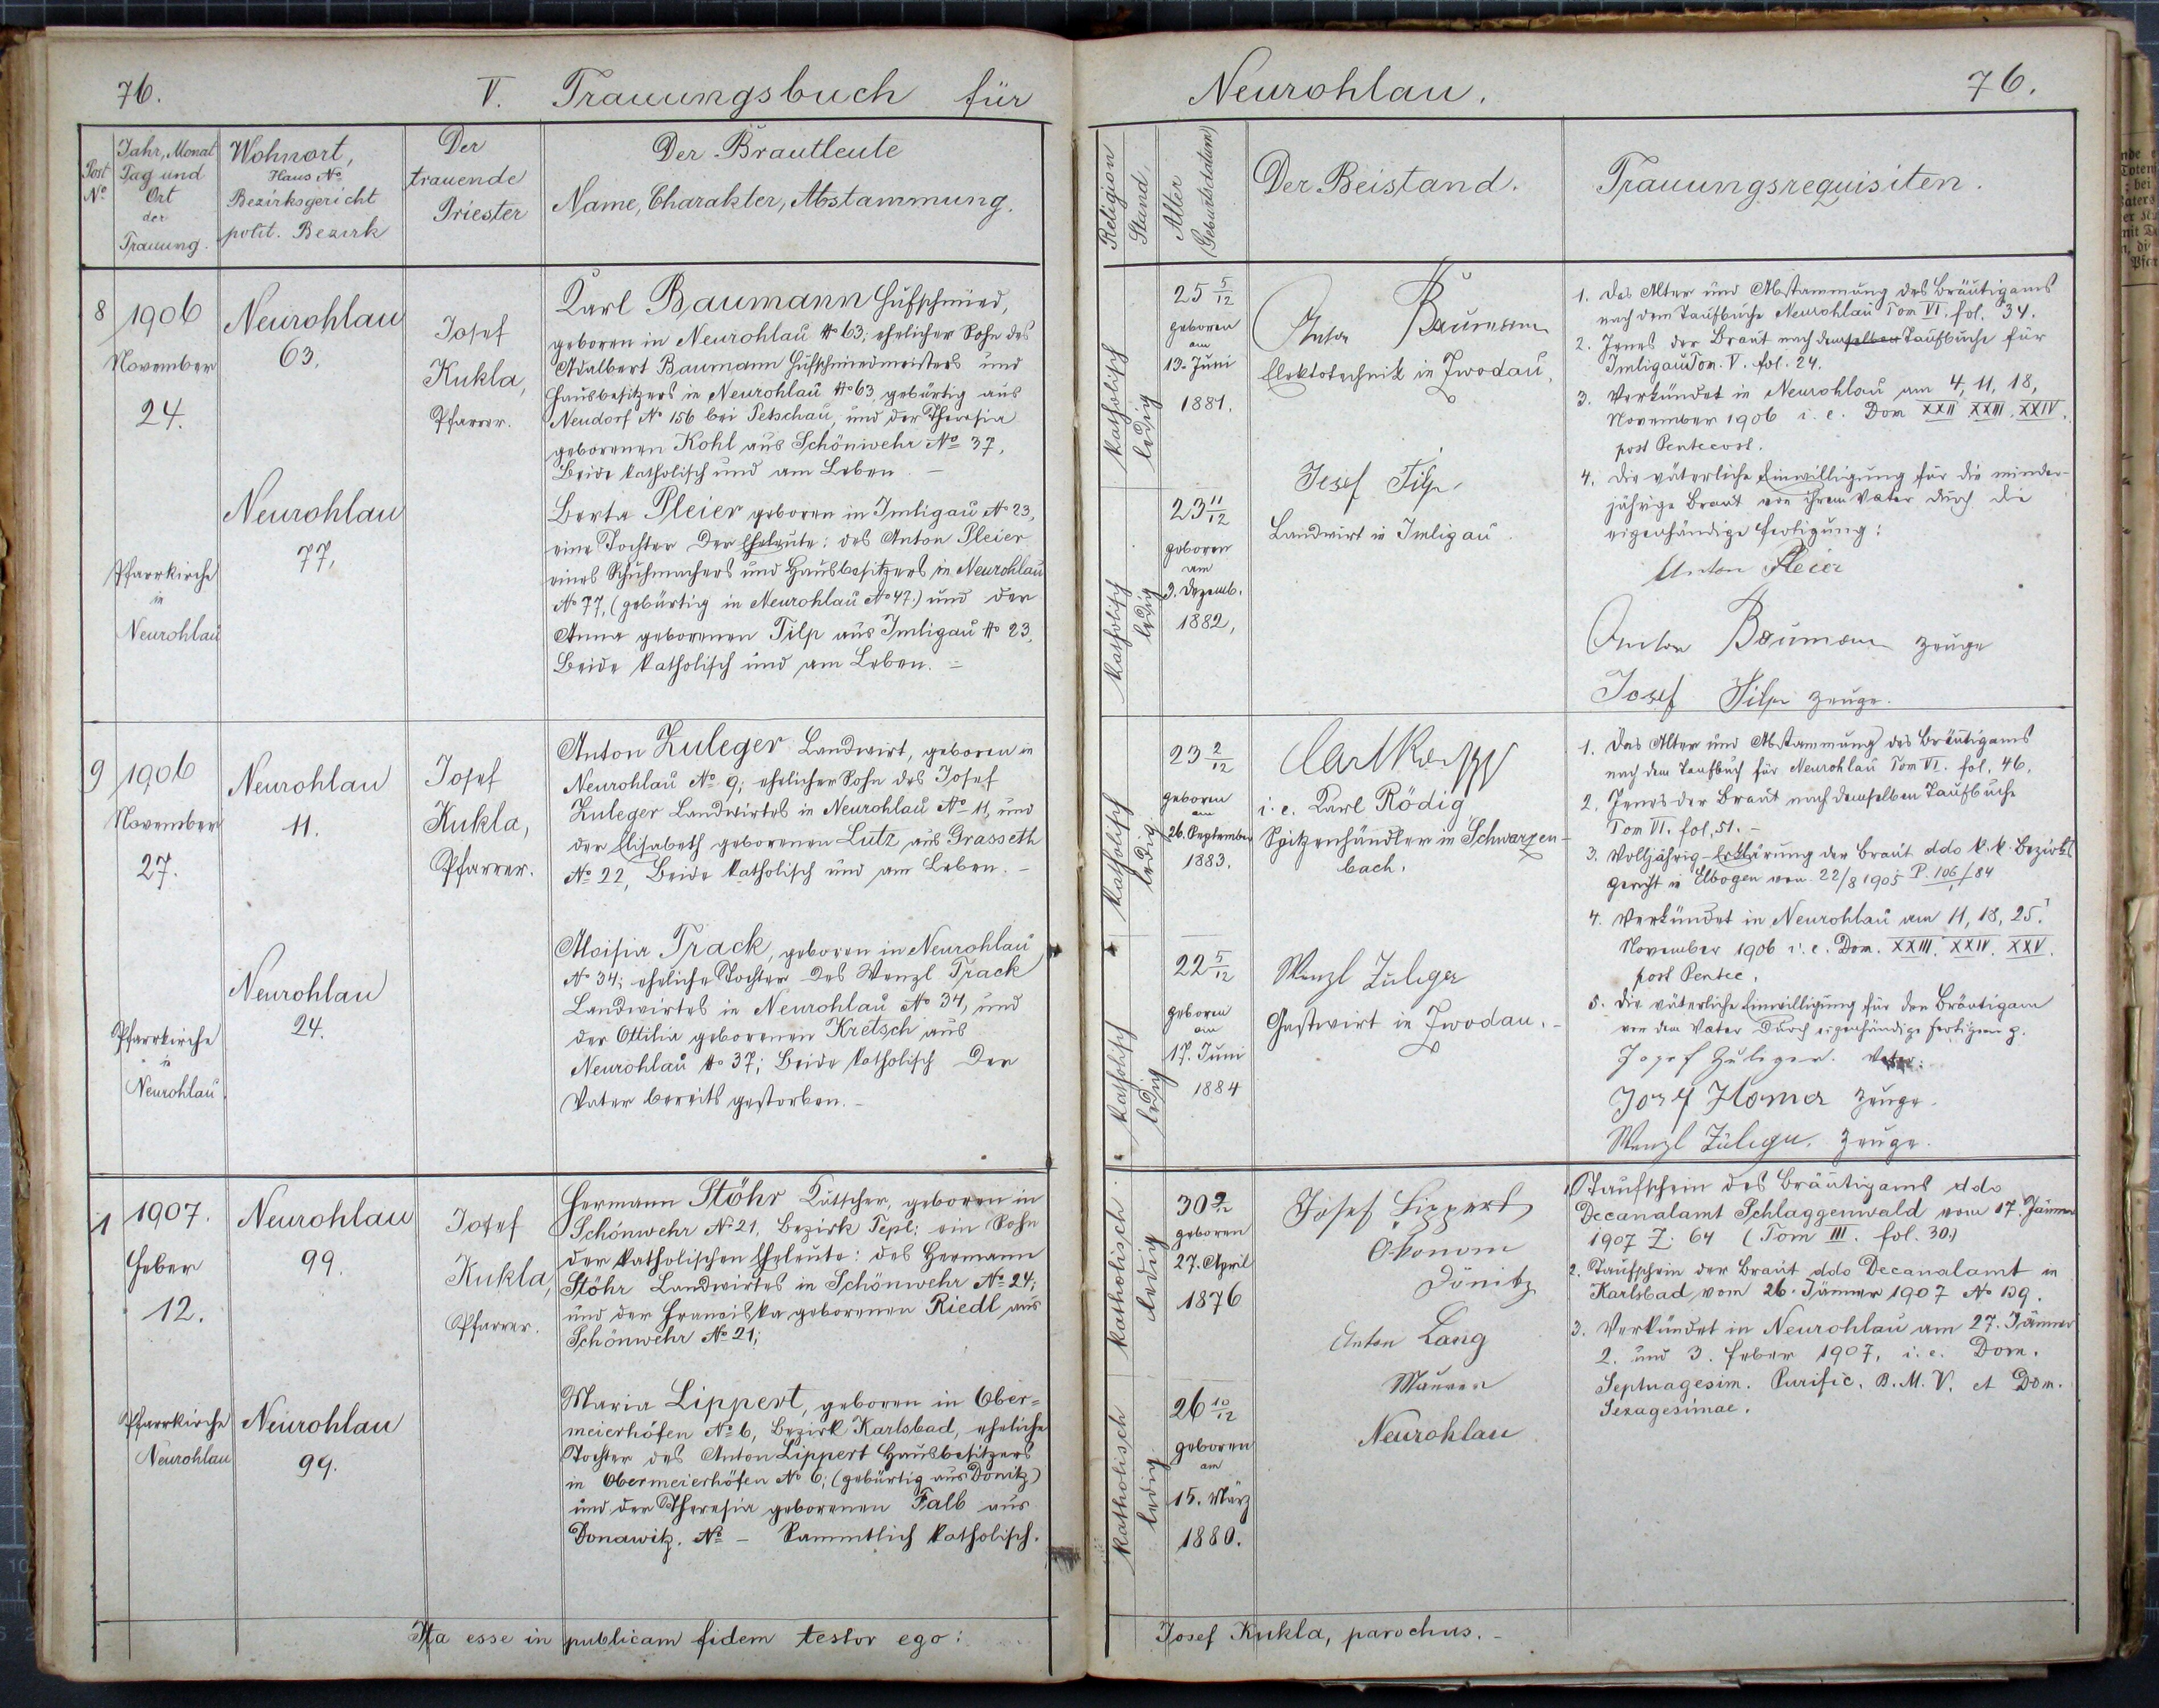 76.
V. Trauungsbuch für
Neurohlau.
76.
Post
No
Jahr, Monat
Tag und
Ort
der
Trauung.
Wohnort,
Haus No
Bezirksgericht
polit. Bezirk
Der
trauende
Priester
Der Brautleute
Name, Charakter, Abstammung.
Religion
Stand
Alter
(Geburtsdatum)
Der Beistand.
Trauungsrequisiten.
8
1906
November
24.
Pfarrkirche
in
Neurohlau
Neurohlau
63.
Neurohlau
77.
Josef
Kukla,
Pfarrer.
Karl Baumann Hufschmied,
geboren in Neurohlau No 63; ehelicher Sohn des
Adalbert Baumann Hufschmiedmeisters und
Hausbesitzers in Neurohlau No 63, gebürtig aus
Neudorf No 156 bei Petschau, und der Theresia
geborenen Kohl aus Schönwehr No 37,
Beide katholisch und am Leben. –
Berta Pleier geboren in Imligau No 23,
eine Tochter der Eheleute: des Anton Pleier
eines Schuhmachers und Hausbesitzers in Neurohlau
No 77, (gebürtig in Neurohlau No 47.) und der
Anna geborenen Tilp aus Imligau No 23,
Beide katholisch und am Leben. –
katholisch
ledig
katholisch
ledig
25 5/12
geboren
am
13. Juni
1881.
23 11/12
geboren
am
3. Dezemb.
1882,
Anton Baumann
Elektotechnik in Zwodau,
Josef Tilp
Landwirt in Imligau.
1. Das Alter und Abstammung des Bräutigams
nach dem Taufbuche Neurohlau Tom VI. fol. 34.
2. Jenes der Braut nach demselben Taufbuche für
Imligau Tom. V. fol. 24.
3. Verkündet in Neurohlau am 4, 11, 18,
November 1906 i. e. Dom XXII. XXIII. XXIV.
post Pentecost.
4. Die väterliche Einwilligung für die minder-
jährige Braut von ihrem Vater durch die
eigenhändige Fertigung:
Anton Pleier
Anton Baumann Zeuge
Josef Tilp Zeuge.
9
1906
November
27.
Pfarrkirche
in
Neurohlau
Neurohlau
11.
Neurohlau
24.
Josef
Kukla,
Pfarrer.
Anton Zuleger Landwirt, geboren in
Neurohlau No 9; ehelicher Sohn des Josef
Zuleger Landwirtes in Neurohlau No 11, und
der Elisabeth geborenen Lutz aus Grasseth
No 22, Beide katholisch und am Leben. –
Aloisia Track, geboren in Neurohlau
No 34; eheliche Tochter des Wenzl Track
Landwirtes in Neurohlau No 34, und
der Ottilia geborenen Kretsch aus
Neurohlau No 37; Beide katholisch Der
Vater bereits gestorben. –
katholisch
ledig
katholisch
ledig
23 2/12
geboren
am
26. September
1883.
22 5/12
geboren
am
17. Juni
1884
i. e. Karl Rödig
Spitzenhändler in Schwarzen-
bach.
Wenzl Zuleger
Gastwirt in Zwodau. –
1. Das Alter und Abstammung des Bräutigams
nach dem Taufbuch für Neurohlau Tom VI. fol. 46.
2. Jenes der Braut nach demselben Taufbuche
Tom VI. fol. 51. –
3. Volljährig-Erklärung der Braut ddo k. k. Bezirks
Gericht in Elbogen von 22/8 1905 P. 106/84
4. Verkündet in Neurohlau am 11, 18, 25.
November 1906 i. e. Dom. XXIII. XXIV. XXV.
post Pentec.
5. Die väterliche Einwilligung für den Bräutigam
von dem Vater durch eigenhändige Fertigung.
Josef Zuleger. Vater:
Zeuge.
Wenzl Zuleger. Zeuge.
1
1907.
Feber
12.
Pfarrkirche
Neurohlau
Neurohlau
99.
Neurohlau
99.
Josef
Kukla,
Pfarrer.
Hermann Stöhr Kutscher, geboren in
Schönwehr No 21, Bezirk Tepl; ein Sohn
der katholischen Eheleute: des Hermann
Stöhr Landwirtes in Schönwehr No 24;
und der Franciska geborenen Riedl aus
Schönwehr No 21;
Maria Lippert, geboren in Ober-
meierhöfen No 6, Bezirk Karlsbad, eheliche
Tochter des Anton Lippert Hausbesitzers
in Obermeierhöfen No 6; (gebürtig aus Donitz)
und der Theresia geborenen Falb aus
Donawitz. No – Sammtlich katholisch.
katholisch
ledig
katholisch
ledig
30 9/12
geboren
27. April
1876
26 10/12
geboren
am
15. März
1880.
Josef Lippert
Ökonom
Dönitz
Anton Lang
Maurer
Neurohlau
1. Taufschein des Bräutigams ddo
Decanalamt Schlaggenwald vom 17. Jänner
1907 Z. 64 (Tom III. fol. 30.)
2. Taufschein der Braut ddo Decanalamt in
Karlsbad vom 26. Jänner 1907 No 139.
3. Verkündet in Neurohlau am 27. Jänner
2. und 3. Feber 1907, i. e. Dom.
Septuagesim. Purific. B. M. V. et Dom.
Sexagesimae.
Ita esse in publicam fidem testor ego:
Josef Kukla, parochus. –